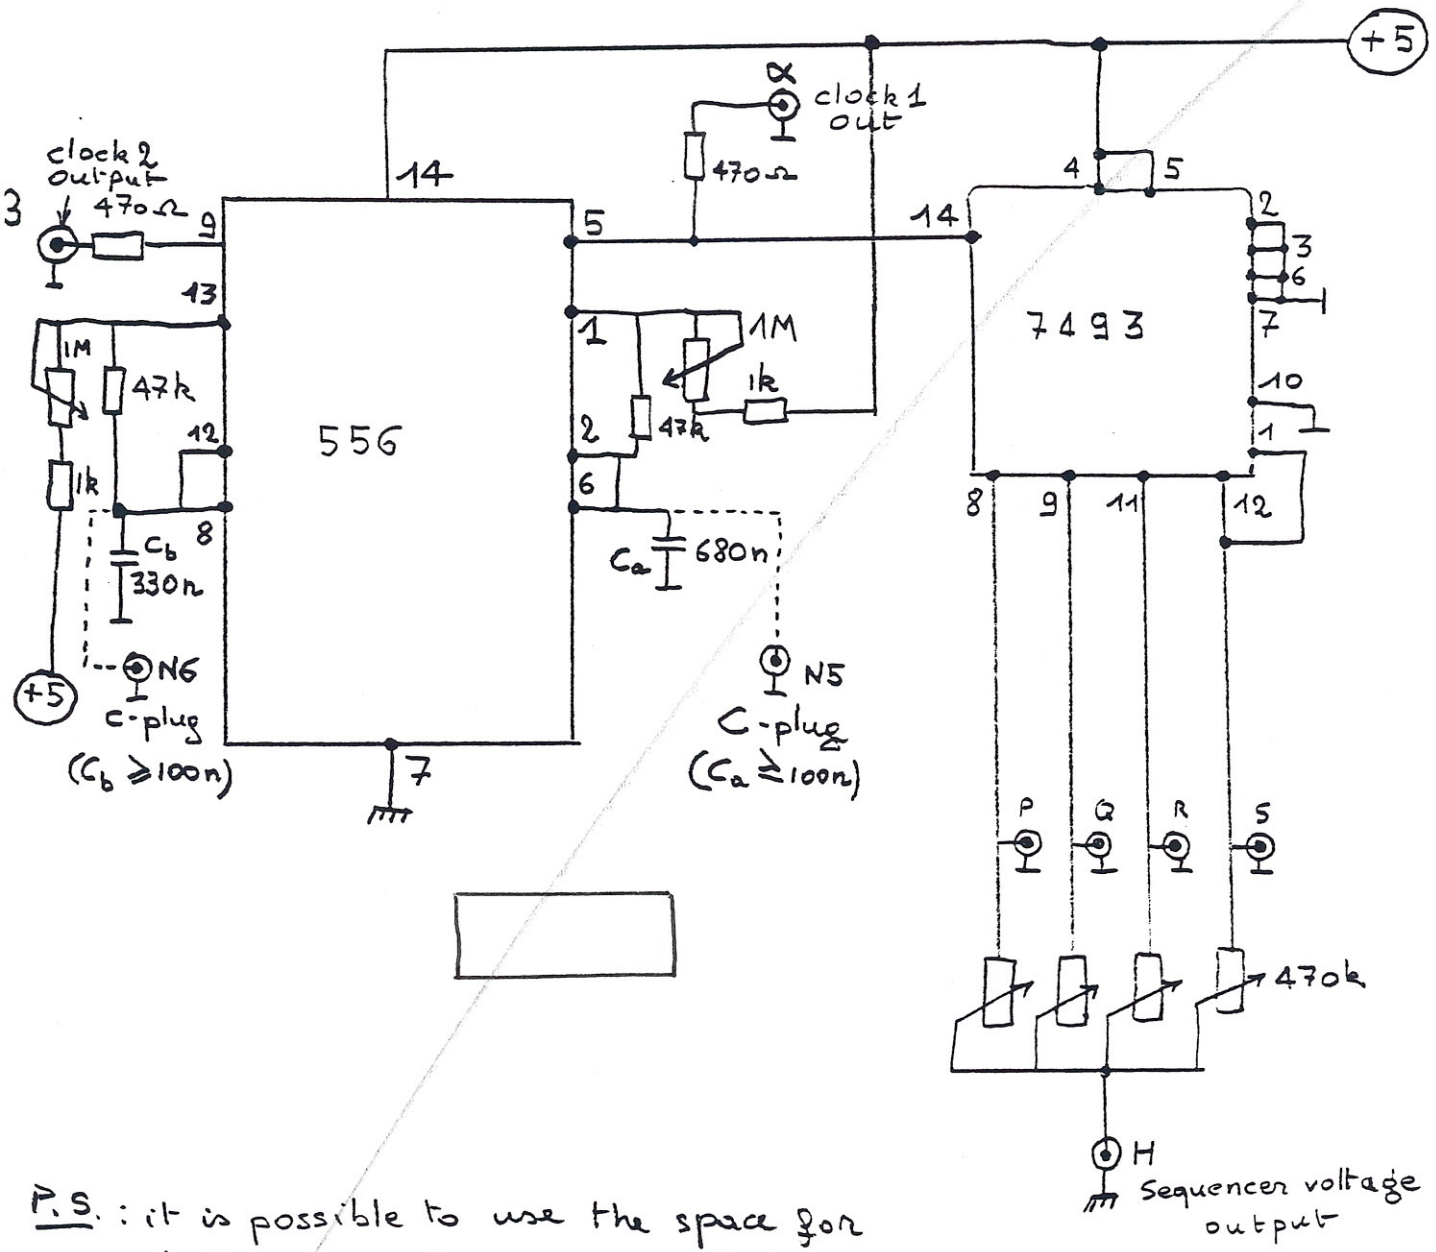 +5
α
clock 1
out
clock 2
output
470Ω
3
9
14
470Ω
5
14
4
5
2
3
6
7
13
1M
47k
12
1k
8
Cb
330n
N6
C-plug
(Cb ⩾ 100n)
+5
556
1
1M
1k
2
47k
6
Ca
680n
N5
C-plug
(Ca ⩾ 100n)
7
7493
10
1
8
9
11
12
P
Q
R
S
470k
H
Sequencer voltage
output
P.S. : it is possible to use the space for